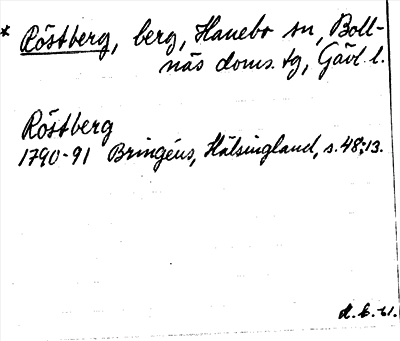 * Röstberg, berg, Hanebo sn, Boll-
näs doms. tg, Gävl. l.
Röstberg
1790-91 Bringéus, Hälsingland, s. 48:13.